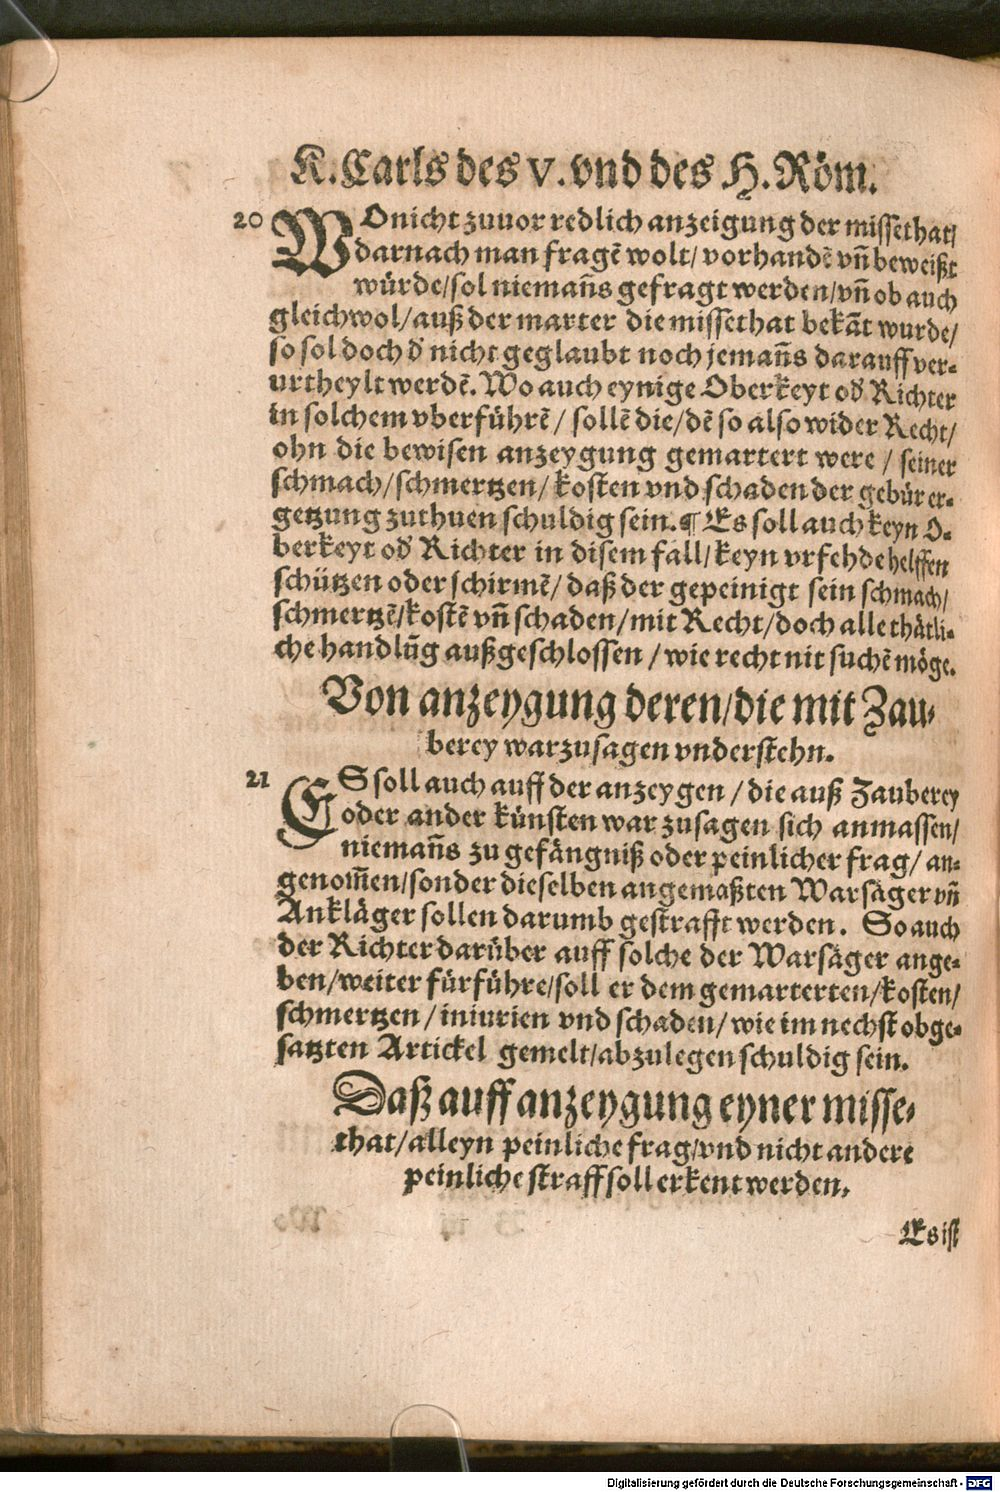 K. Carls des V. vnd des H. Röm.
20 WOnicht zuuor redlich anzeigung der missethat/
darnach man fragẽ wolt/ vorhandẽ vñ beweißt
würde/ sol niemañs gefragt werden/ vñ ob auch
gleichwol/ auß der marter die missethat bekãt wurde/
so sol doch d' nicht geglaubt noch jemañs darauff ver-
urtheylt werdẽ. Wo auch eynige Oberkeyt od' Richter
in solchem vberführẽ/ sollẽ die/ dẽ so also wider Recht/
ohn die bewisen anzeygung gemartert were/ seiner
schmach/ schmertzen/ kosten vnd schaden der gebür er-
getzung zuthuen schuldig sein. ¶ Es soll auch keyn O-
berkeyt od' Richter in disem fall/ keyn vrfehde helffen
schützen oder schirmẽ/ daß der gepeinigt sein schmach/
schmertzẽ/ kostẽ vñ schaden/ mit Recht/ doch alle thätli-
che handlũg außgeschlossen/ wie recht nit suchẽ möge.
Von anzeygung deren/ die mit Zau-
berey warzusagen vnderstehn.
21 ES soll auch auff der anzeygen/ die auß Zauberey
oder ander künsten war zusagen sich anmassen/
niemañs zu gefängniß oder peinlicher frag/ an-
genom̃en/ sonder dieselben angemaßten Warsäger vñ
Ankläger sollen darumb gestrafft werden. So auch
der Richter darüber auff solche der Warsäger ange-
ben/ weiter fürführe/ soll er dem gemarterten/ kosten/
schmertzen/ iniurien vnd schaden/ wie im nechst obge-
satzten Artickel gemelt/ abzulegen schuldig sein.
Daß auff anzeygung eyner misse-
that/ alleyn peinliche frag/ vnd nicht andere
peinliche straff soll erkent werden.
Es ist
Digitalisierung gefördert durch die Deutsche Forschungsgemeinschaft - DFG